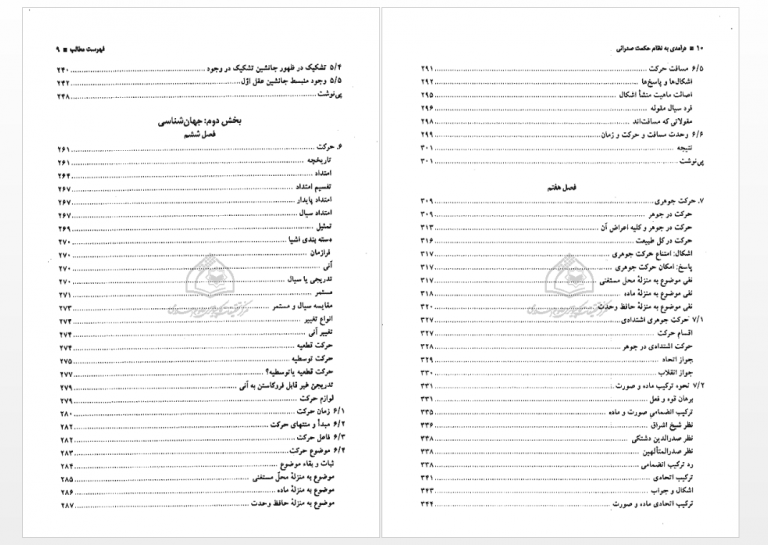 فهرست مطالب ■ ۹
۵/۴ تشکیک در ظهور جانشین تشکیک در وجود ۲۴۰
۵/۵ وجود منبسط جانشین عقل اوّل ۲۴۲
پی‌نوشت ۲۴۸
بخش دوم: جهان‌شناسی
فصل ششم
۶. حرکت ۲۶۱
تاریخچه ۲۶۱
امتداد ۲۶۴
تقسیم امتداد ۲۶۷
امتداد پایدار ۲۶۷
امتداد سیال ۲۶۷
تمثیل ۲۶۹
دسته بندی اشیا ۲۷۰
فرازمان ۲۷۰
آنی ۲۷۰
تدریجی یا سیال ۲۷۰
مستمر ۲۷۱
مقایسه سیال و مستمر ۲۷۳
انواع تغییر ۲۷۴
تغییر آنی ۲۷۴
حرکت قطعیه ۲۷۴
حرکت توسطیه ۲۷۵
حرکت قطعیه یا توسطیه؟ ۲۷۷
تدریجیّ غیر قابل فروکاستن به آنی ۲۷۹
لوازم حرکت ۲۷۹
۶/۱ زمان حرکت ۲۸۰
۶/۲ مبدأ و منتهای حرکت ۲۸۲
۶/۳ فاعل حرکت ۲۸۲
۶/۴ موضوع حرکت ۲۸۳
ثبات و بقاء موضوع ۲۸۴
موضوع به منزلهٔ محلّ مستغنی ۲۸۵
موضوع به منزلهٔ ماده ۲۸۶
موضوع به منزلهٔ حافظ وحدت ۲۸۷
۱۰ ■ درآمدی به نظام حکمت صدرائی
۶/۵ مسافت حرکت ۲۹۱
اشکال‌ها و پاسخ‌ها ۲۹۲
اصالت ماهیت منشأ اشکال ۲۹۵
فرد سیال مقوله ۲۹۶
مقولاتی که مسافت‌اند ۲۹۸
۶/۶ وحدت مسافت و حرکت و زمان ۲۹۹
نتیجه ۳۰۱
پی‌نوشت ۳۰۱
فصل هفتم
۷. حرکت جوهری ۳۰۹
حرکت در جوهر ۳۰۹
حرکت در جوهر و کلیه اعراض آن ۳۱۳
حرکت در کل طبیعت ۳۱۶
اشکال: امتناع حرکت جوهری ۳۱۷
پاسخ: امکان حرکت جوهری ۳۱۷
نفی موضوع به منزلهٔ محل مستغنی ۳۱۷
نفی موضوع به منزلهٔ ماده ۳۱۸
نفی موضوع به منزلهٔ حافظ وحدت ۳۲۰
۷/۱ حرکت جوهری اشتدادی ۳۲۷
اقسام حرکت ۳۲۷
حرکت اشتدادی در جوهر ۳۲۸
جواز اتحاد ۳۲۹
جواز انقلاب ۳۳۰
۷/۲ نحوه ترکیب ماده و صورت ۳۳۱
برهان قوه و فعل ۳۳۱
ترکیب انضمامی صورت و ماده ۳۳۵
نظر شیخ اشراق ۳۳۶
نظر صدرالدین دشتکی ۳۳۸
نظر صدرالمتألهین ۳۳۸
رد ترکیب انضمامی ۳۳۸
ترکیب اتحادی ۳۴۱
اشکال و جواب ۳۴۳
ترکیب اتحادی ماده و صورت ۳۴۴